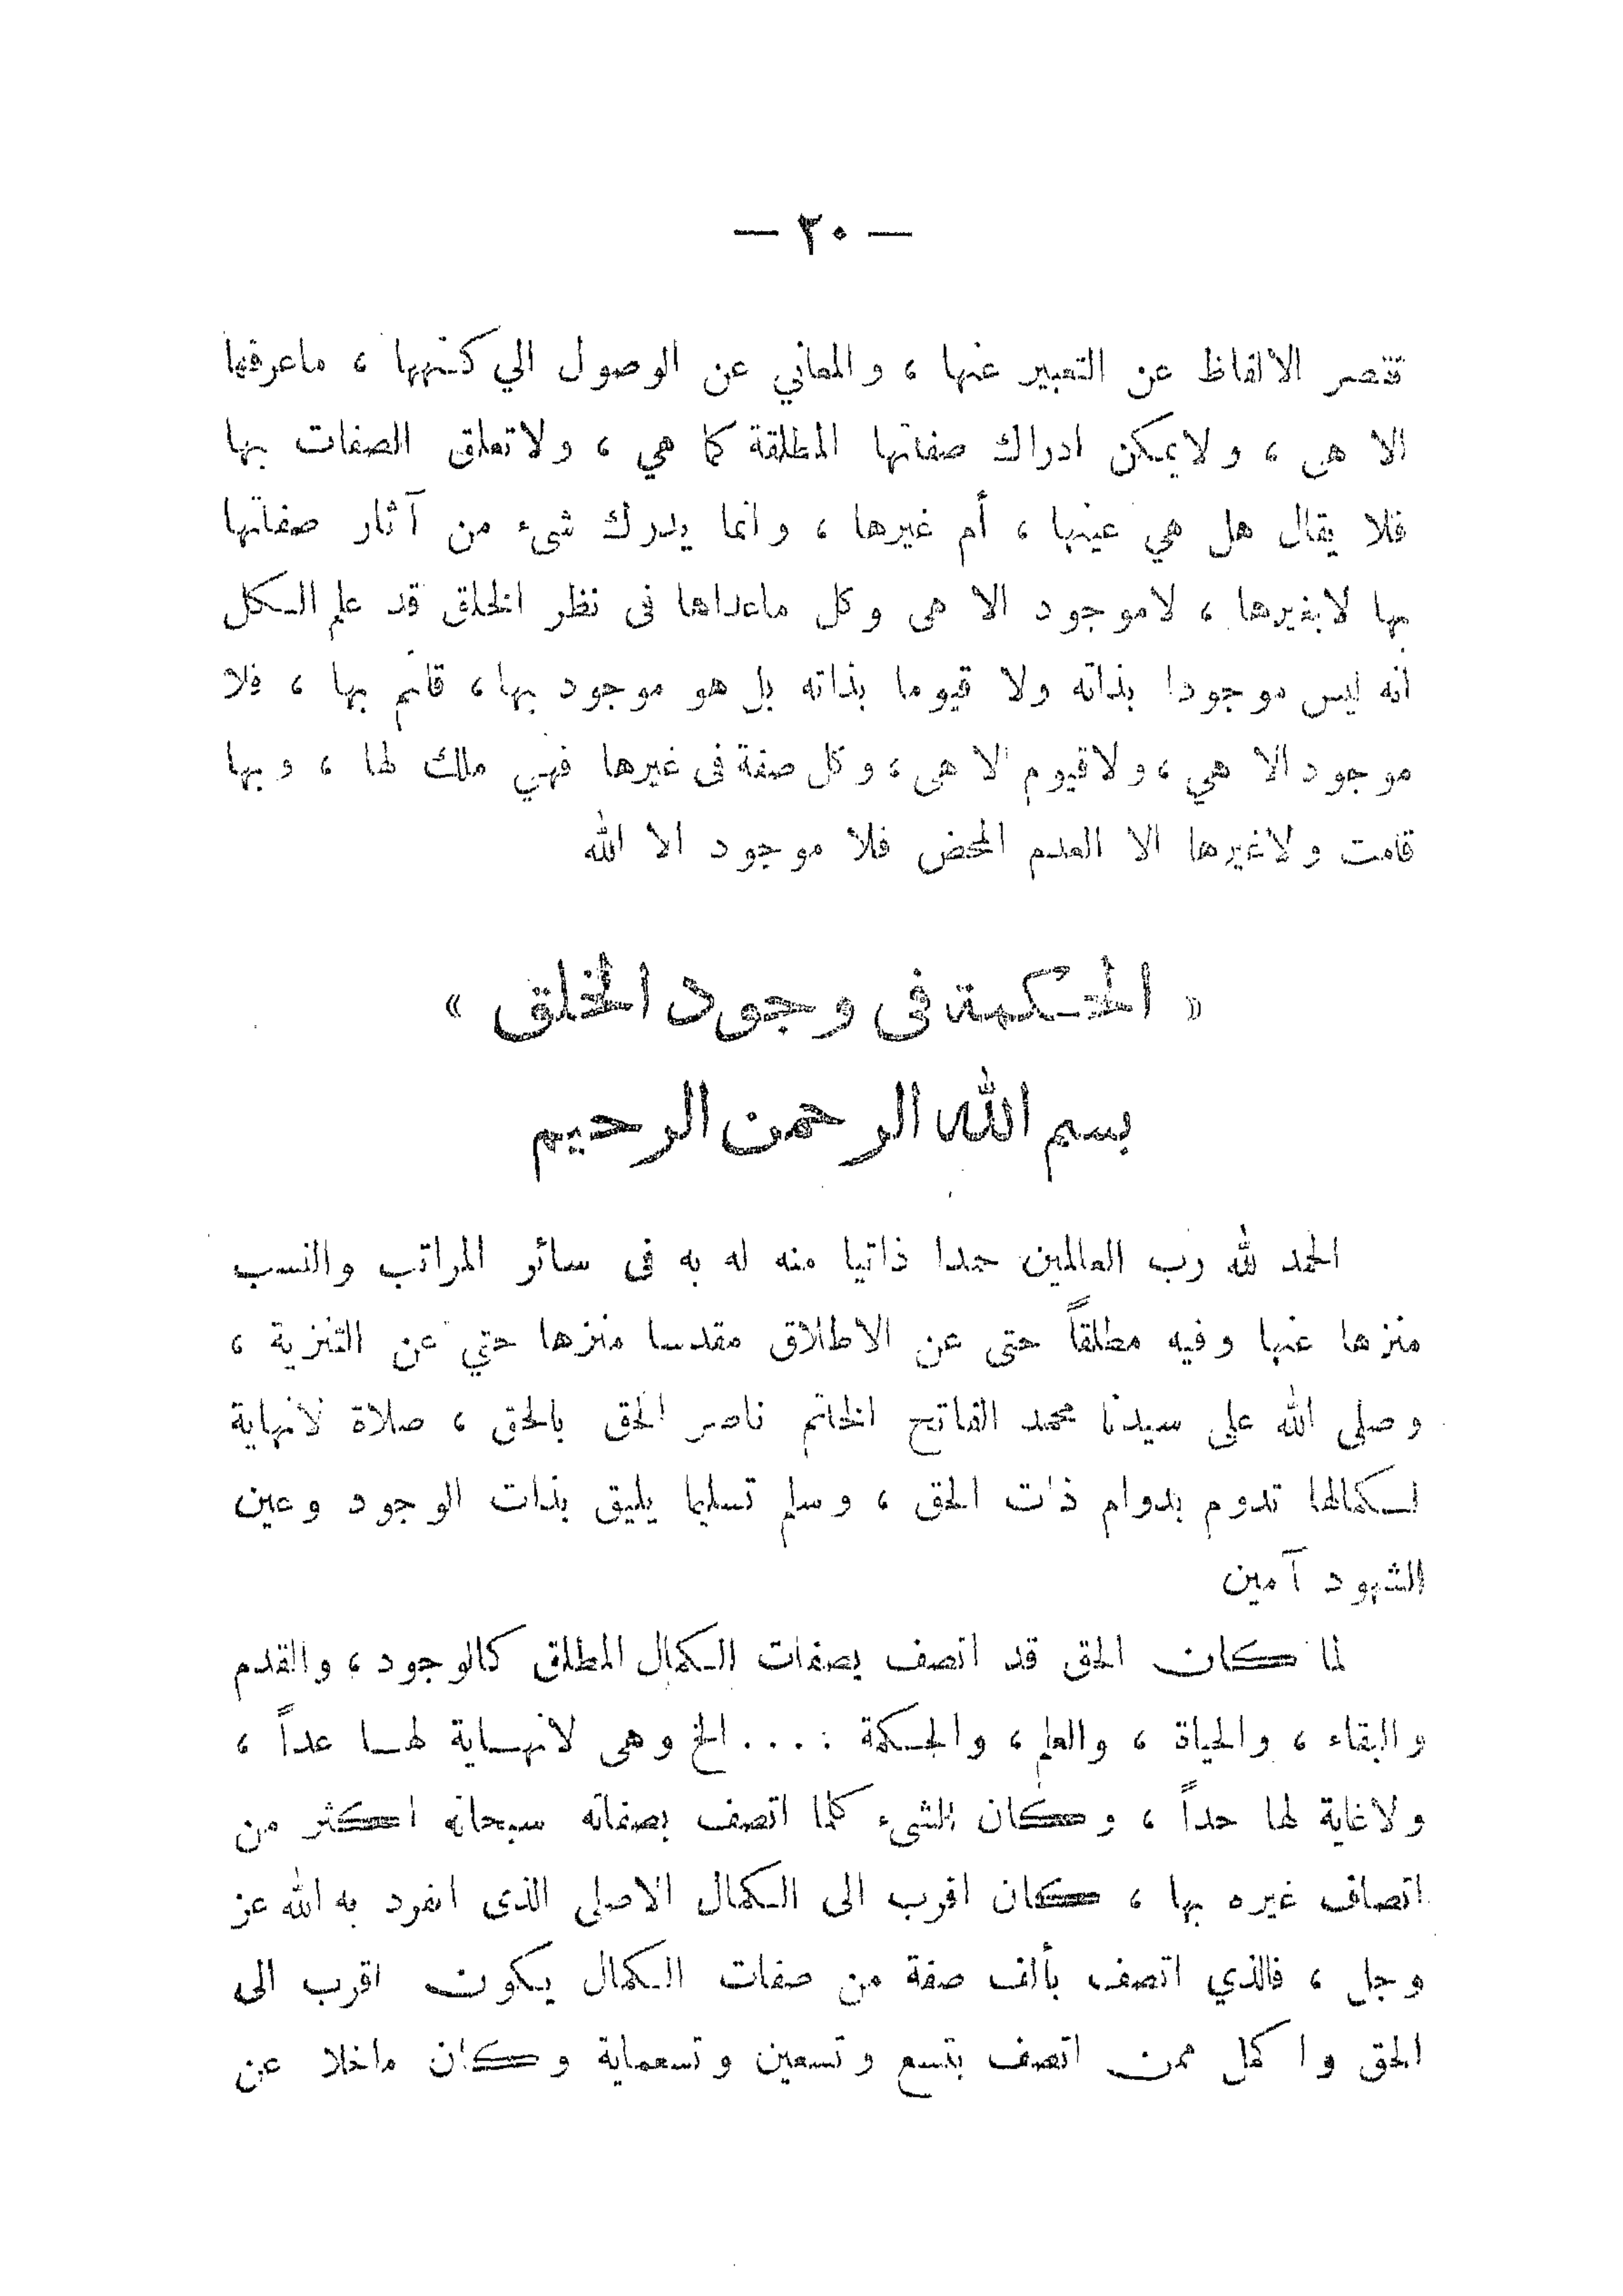 — ٢٠ —
تقصر الالفاظ عن التعبير عنها ، والمعاني عن الوصول الي كنهها ، ماعرفها
الا هى ، ولايمكن ادراك صفاتها المطلقة كما هي ، ولاتعلق الصفات بها
فلا يقال هل هي عينها ، أم غيرها ، وانما يدرك شىء من آثار صفاتها
بها لابغيرها ، لاموجود الا هى وكل ماعداها فى نظر الخلق قد علم الكل
انه ليس موجودا بذاته ولا قيوما بذاته بل هو موجود بها ، قائم بها ، فلا
موجود الا هي ، ولاقيوم الا هى ، وكل صفة فى غيرها فهي ملك لها ، وبها
قامت ولاغيرها الا العدم المحض فلا موجود الا الله
« الحكمة فى وجود الخلق »
بسم الله الرحمن الرحيم
الحمد لله رب العالمين حمدا ذاتيا منه له به فى سائر المراتب والنسب
منزها عنها وفيه مطلقاً حتى عن الاطلاق مقدسا منزها حتي عن التنزية ،
وصلى الله على سيدنا محمد الفاتح الخاتم ناصر الحق بالحق ، صلاة لانهاية
لكمالها تدوم بدوام ذات الحق ، وسلم تسليما يليق بذات الوجود وعين
الشهود آمين
لما كان الحق قد اتصف بصفات الكمال المطلق كالوجود ، والقدم
والبقاء ، والحياة ، والعلم ، والحكمة .... الخ وهى لانهاية لها عداً ،
ولاغاية لها حداً ، وكان الشىء كلما اتصف بصفاته سبحانه اكثر من
اتصاف غيره بها ، كان اقرب الى الكمال الاصلى الذى انفرد به الله عز
وجل ، فالذي اتصف بألف صفة من صفات الكمال يكون اقرب الى
الحق واكمل ممن اتصف بتسع وتسعين وتسعماية وكان ماخلا عن